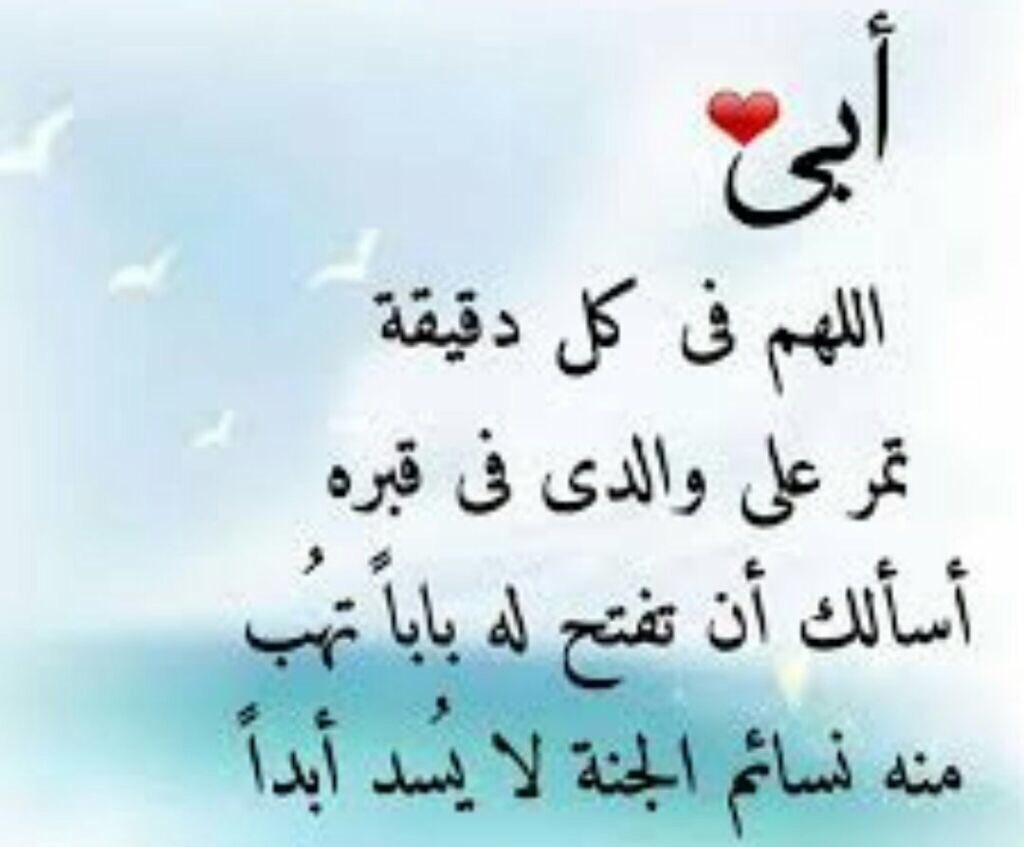 أبى
اللهم فى كل دقيقة
تمر على والدى فى قبره
أسألك أن تفتح له باباً تهُب
منه نسائم الجنة لا يُسد أبداً